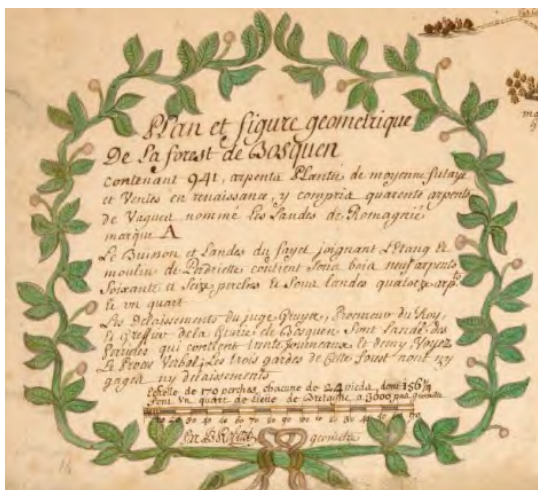 Plan et figure geometrique
De la forest de Bosquen
contenant 941, arpents Plantés de moyenne futaye
et Ventes en renaissance, y compris quarente arpents
de Vagues nommé les Landes de Romagerie
marque A
Le Buisson et Landes du fayel joignant L'Etang et
moulin de Perdriette contient sous bois neuf arpents
Soixante et Seize perches et Sous landes quatorze arpts
et vn quart
Les Delaissements du juge Gruyer, Procureur du Roy,
et Greffier de la Grurie de Bosquen Sont Landes des
qui contient trente Journeaux et demy, Voyez
Le Proces Verbal; Les trois gardes de Cette forest nont ny
gages ny delaissements
Echelle de 170 perches chacune de 24 pieds, dont 156 1/4
font vn quart de lieue de Bretagne, a 3600 pas
geometre